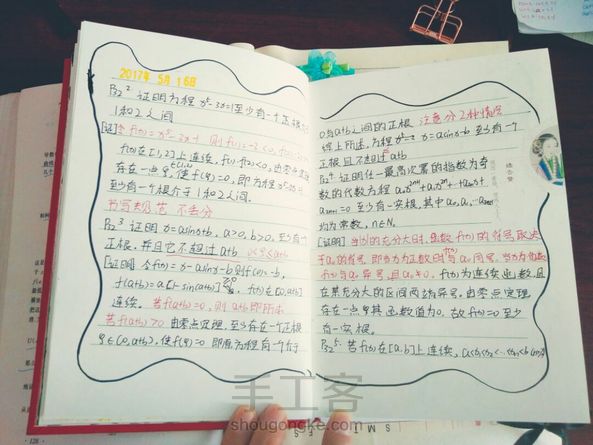 2017年 5月 16日
P₃₂ 2 证明方程 x⁵-3x=1至少有一个正根介于
1和2之间
[证] 令 f(x)=x⁵-3x-1 则 f(1)=-3<0,
f(x)在[1,2]上连续, f(1)·f(2)<0, 由零点定理
存在一点φ, 使 f(φ)=0, 即方程
至少有一个根介于1和2之间.
书写规范 不丢分
P₃₂ 3 证明方程 x=asinx+b, a>0, b>0, 至少有一个
正根, 并且它不超过a+b
[证明] 令f(x)=x-asinx-b 则f(0)=-b,
f(a+b)=a[1-sin(a+b)]≥0, f(x)在[0,a+b]
连续. 若f(a+b)=0, 则 a+b 即所求
若f(a+b)>0 由零点定理, 至少存在一个正根
φ∈(0,a+b), 使f(φ)=0 即原方程有一个介于
0与a+b之间的正根 注意分2种情况
综上所述, 方程 x=asinx+b 至少有一个
正根且不超过a+b
P₃₂ 4 证明任一最高次幂的指数为奇
数的代数方程 a₀x²ⁿ⁺¹+a₁x²ⁿ+…+a₂ₙx+
a₂ₙ₊₁=0 至少有一实根, 其中a₀,a₁…a₂ₙ₊₁
均为常数, n∈N.
[证明] 当|x|充分大时, 函数 f(x)的符号取决
于a₀的符号, 即当x为正数时f(x)与a₀同号, 当x为负数
f(x)与a₀异号, 且a₀≠0, f(x)为连续函数, 且
在某充分大的区间两端异号, 由零点定理,
存在一点φ其函数值为0, 故f(x)=0至少
有一实根.
P₃₂ 5. 若f(x)在[a,b]上连续, a<x₁<x₂<…<xₙ<b
手工客
shougongke.com
128